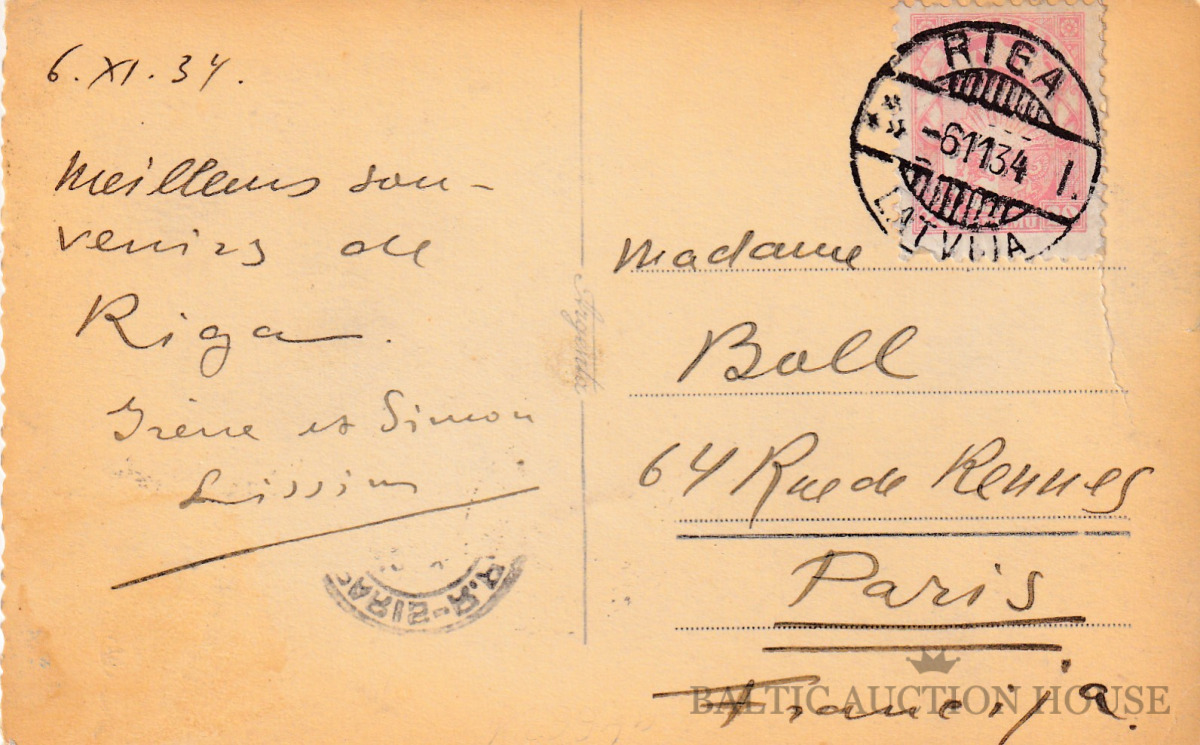 6. XI. 34.
Meilleurs sou-
venirs de
Riga.
Irène et Simon
Lissim
Argenta
RIGA
-61134
I.
LATVIJA
Madame
Ball
64 Rue de Rennes
Paris
Francija.
PARIS-R.P.
BALTIC AUCTION HOUSE